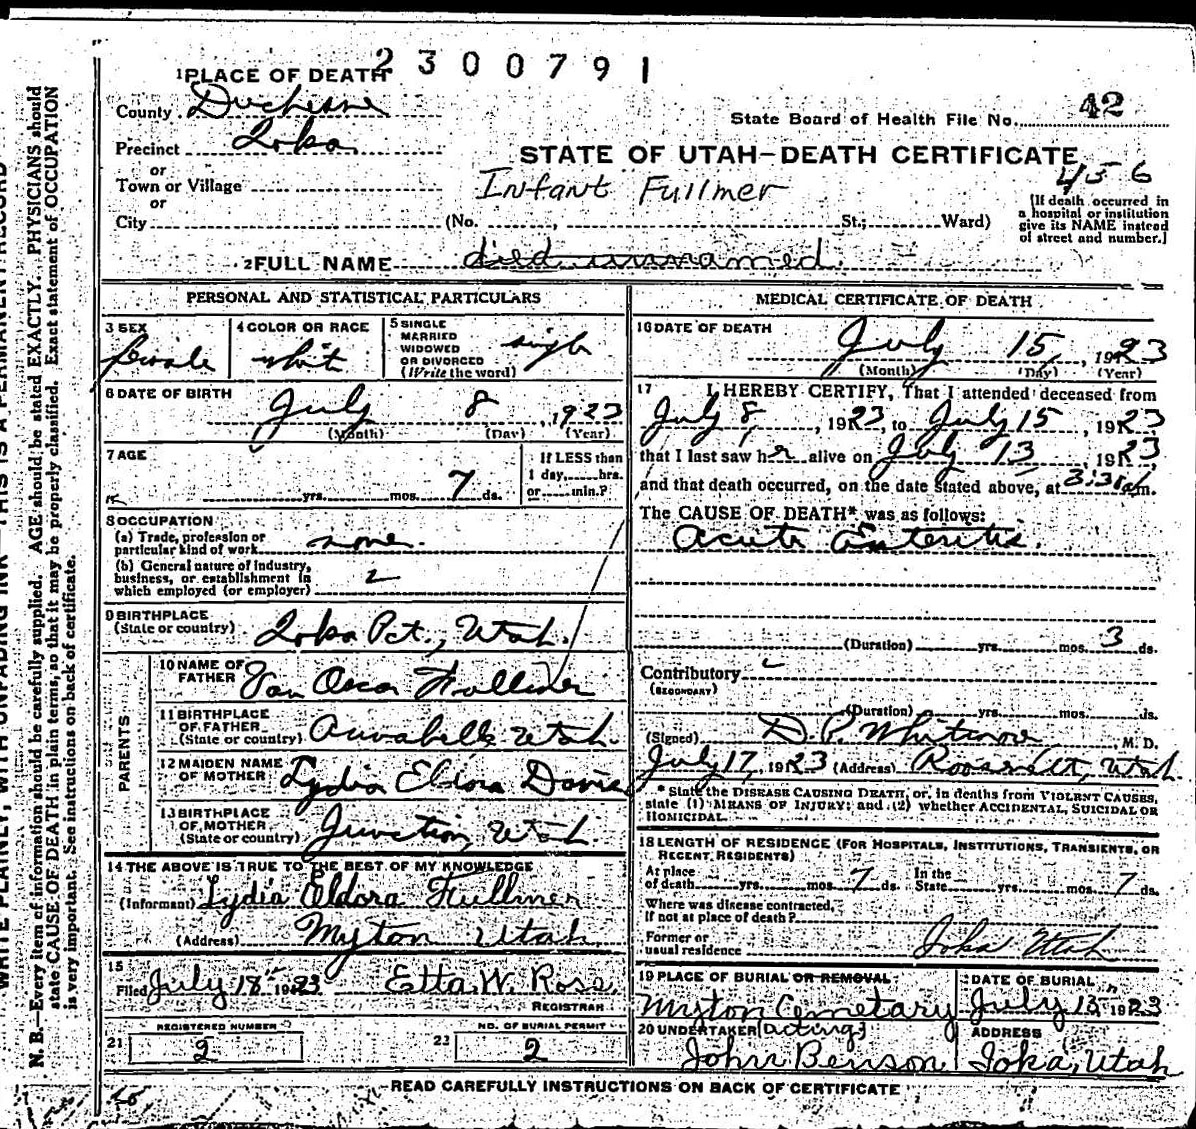 2300791
1 PLACE OF DEATH
County Duchesne
State Board of Health File No. 42
Precinct Ioka
STATE OF UTAH—DEATH CERTIFICATE
456
or
Town or Village
Infant Fullmer
or
City (No. , St.; Ward)
[If death occurred in
a hospital or institution
give its NAME instead
of street and number.]
2 FULL NAME died unnamed.
PERSONAL AND STATISTICAL PARTICULARS
3 SEX
female
4 COLOR OR RACE
white
5 SINGLE
MARRIED
WIDOWED
OR DIVORCED
(Write the word)
single
6 DATE OF BIRTH
July 8, 1923
(Month) (Day) (Year)
7 AGE
yrs. mos. 7 ds.
If LESS than
1 day, hrs.
or min.?
8 OCCUPATION
(a) Trade, profession or
particular kind of work none.
(b) General nature of industry,
business, or establishment in
which employed (or employer)
9 BIRTHPLACE
(State or country) Ioka Pct., Utah.
PARENTS
10 NAME OF
FATHER Van Oscar Fullmer
11 BIRTHPLACE
OF FATHER
(State or country) Annabella Utah.
12 MAIDEN NAME
OF MOTHER Lydia Eldora Davis
13 BIRTHPLACE
OF MOTHER
(State or country) Junction, Utah.
14 THE ABOVE IS TRUE TO THE BEST OF MY KNOWLEDGE
(Informant) Lydia Eldora Fullmer
(Address) Myton Utah
15
Filed July 18 1923 Etta W. Rose,
REGISTRAR
REGISTERED NUMBER
21 2
NO. OF BURIAL PERMIT
22 2
MEDICAL CERTIFICATE OF DEATH
16 DATE OF DEATH
July 15, 1923
(Month) (Day) (Year)
17 I HEREBY CERTIFY, That I attended deceased from
July 8, 1923, to July 15, 1923
that I last saw her alive on July 13, 1923
and that death occurred, on the date stated above, at 3:30 a.m.
The CAUSE OF DEATH* was as follows:
Acute Enteritis.
(Duration) yrs. mos. 3 ds.
Contributory
(SECONDARY)
(Duration) yrs. mos. ds.
(Signed) D. P. Whitmore, M. D.
July 17, 1923 (Address) Roosevelt, Utah.
* State the DISEASE CAUSING DEATH, or, in deaths from VIOLENT CAUSES,
state (1) MEANS OF INJURY; and (2) whether ACCIDENTAL, SUICIDAL OR
HOMICIDAL.
18 LENGTH OF RESIDENCE (FOR HOSPITALS, INSTITUTIONS, TRANSIENTS, OR
RECENT RESIDENTS)
At place
of death yrs. mos. 7 ds. In the
State yrs. mos. 7 ds.
Where was disease contracted,
If not at place of death?
Former or
usual residence Ioka Utah
19 PLACE OF BURIAL OR REMOVAL
Myton Cemetary
DATE OF BURIAL
July 15" 1923
20 UNDERTAKER (acting)
John Benson
ADDRESS
Ioka, Utah
READ CAREFULLY INSTRUCTIONS ON BACK OF CERTIFICATE
WRITE PLAINLY, WITH UNFADING INK—THIS IS A PERMANENT RECORD
N. B.—Every item of information should be carefully supplied. AGE should be stated EXACTLY. PHYSICIANS should
state CAUSE OF DEATH in plain terms, so that it may be properly classified. Exact statement of OCCUPATION
is very important. See instructions on back of certificate.